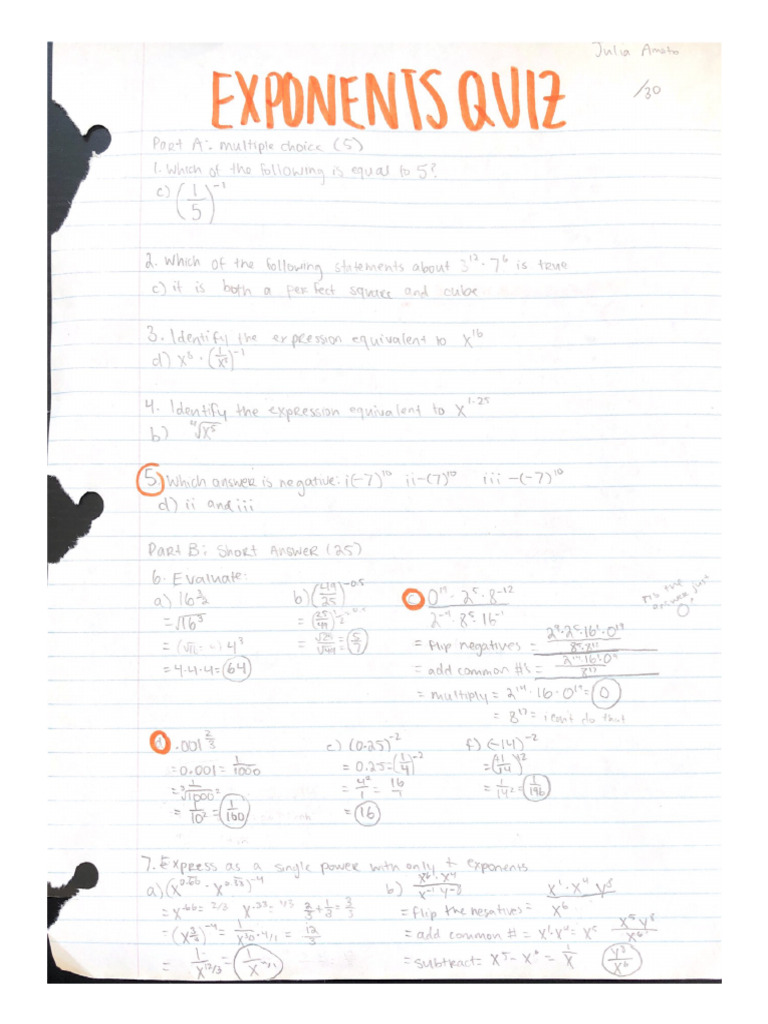 Julia Amato
EXPONENTS QUIZ
/30
Part A: multiple choice (5)
1. Which of the following is equal to 5?
c) (1/5)^-1
2. Which of the following statements about 3^12 · 7^6 is true
c) it is both a perfect square and cube
3. Identify the expression equivalent to x^16
d) x^8 · (1/x^8)^-1
4. Identify the expression equivalent to x^1.25
b) ⁴√x^5
5. Which answer is negative: i(-7)^10 ii-(7)^10 iii -(-7)^10
d) ii and iii
Part B: Short Answer (25)
6. Evaluate:
a) 16^3/2
= √16^3
4^3
= 4·4·4 = 64
b) (49/25)^-0.5
= (25/49)
= √25/√49 = 5/7
c) 0^19 · 2^5 · 8^-12 / 2^-9 · 8^5 · 16^-1
= flip negatives =
= add common #s =
= multiply = 2^14 · 16 · 0^19 = 0
= 8^17 = i can't do that
answer just
0?
d) .001^2/3
= 0.001 = 1/1000
= ³√1/1000 =
= 1/10^2 = 1/100
e) (0.25)^-2
= 0.25 = (1/4)^-2
= 4^2/1 = 16/1
= 16
f) (-14)^-2
= 1/14^2 = 1/196
7. Express as a single power with only + exponents
a) (x^0.66 · x^0.33)^-4
= x^.66 = 2/3 x^.33 = 1/3 2/3 + 1/3 = 3/3
= (x^3/3)^-4 =
= 1/x^12/3 =
b) x^6 · x^4 / x^-1 y^-8
x^1 · x^4 y^8 / x^6
= flip the negatives =
= add common # = x^1 · x^4 = x^5 x^5 y^8 / x^6
= subtract = x^5 - x^6 = 1/x